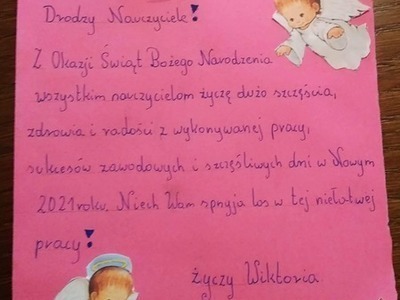 Drodzy Nauczyciele!
Z Okazji Świąt Bożego Narodzenia
wszystkim nauczycielom życzę dużo szczęścia,
zdrowia i radości z wykonywanej pracy,
sukcesów zawodowych i szczęśliwych dni w Nowym
2021 roku. Niech Wam sprzyja los w tej niełatwej
pracy!
życzy Wiktoria